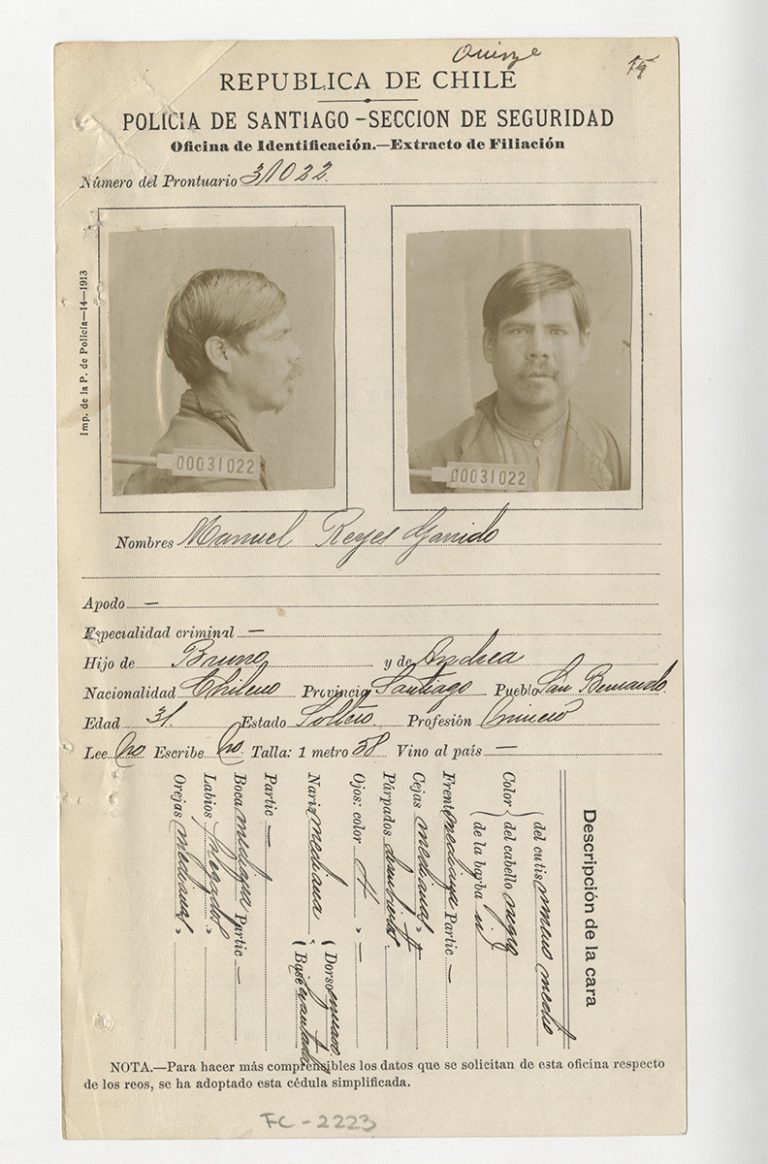 Quinze
REPUBLICA DE CHILE
POLICIA DE SANTIAGO - SECCION DE SEGURIDAD
Oficina de Identificación.—Extracto de Filiación
Número del Prontuario 31022
Imp. de la P. de Policía—14—1913
00031022
00031022
Nombres Manuel Reyes Garrido
Apodo —
Especialidad criminal —
Hijo de Bruno y de Andrea
Nacionalidad Chileno Provincia Santiago Pueblo San Bernardo
Edad 31. Estado Soltero Profesión Minero
Lee No Escribe No. Talla: 1 metro 58 Vino al país —
Descripción de la cara
Color { del cutis medio
del cabello negro
de la barba
Frente mediana Partic —
Cejas medianas
Párpados
Ojos: color
Nariz mediana { Dorso
Base
Partic —
Boca mediana Partic —
Labios delgados
Orejas medianas
NOTA.—Para hacer más comprensibles los datos que se solicitan de esta oficina respecto
de los reos, se ha adoptado esta cédula simplificada.
FC - 2223